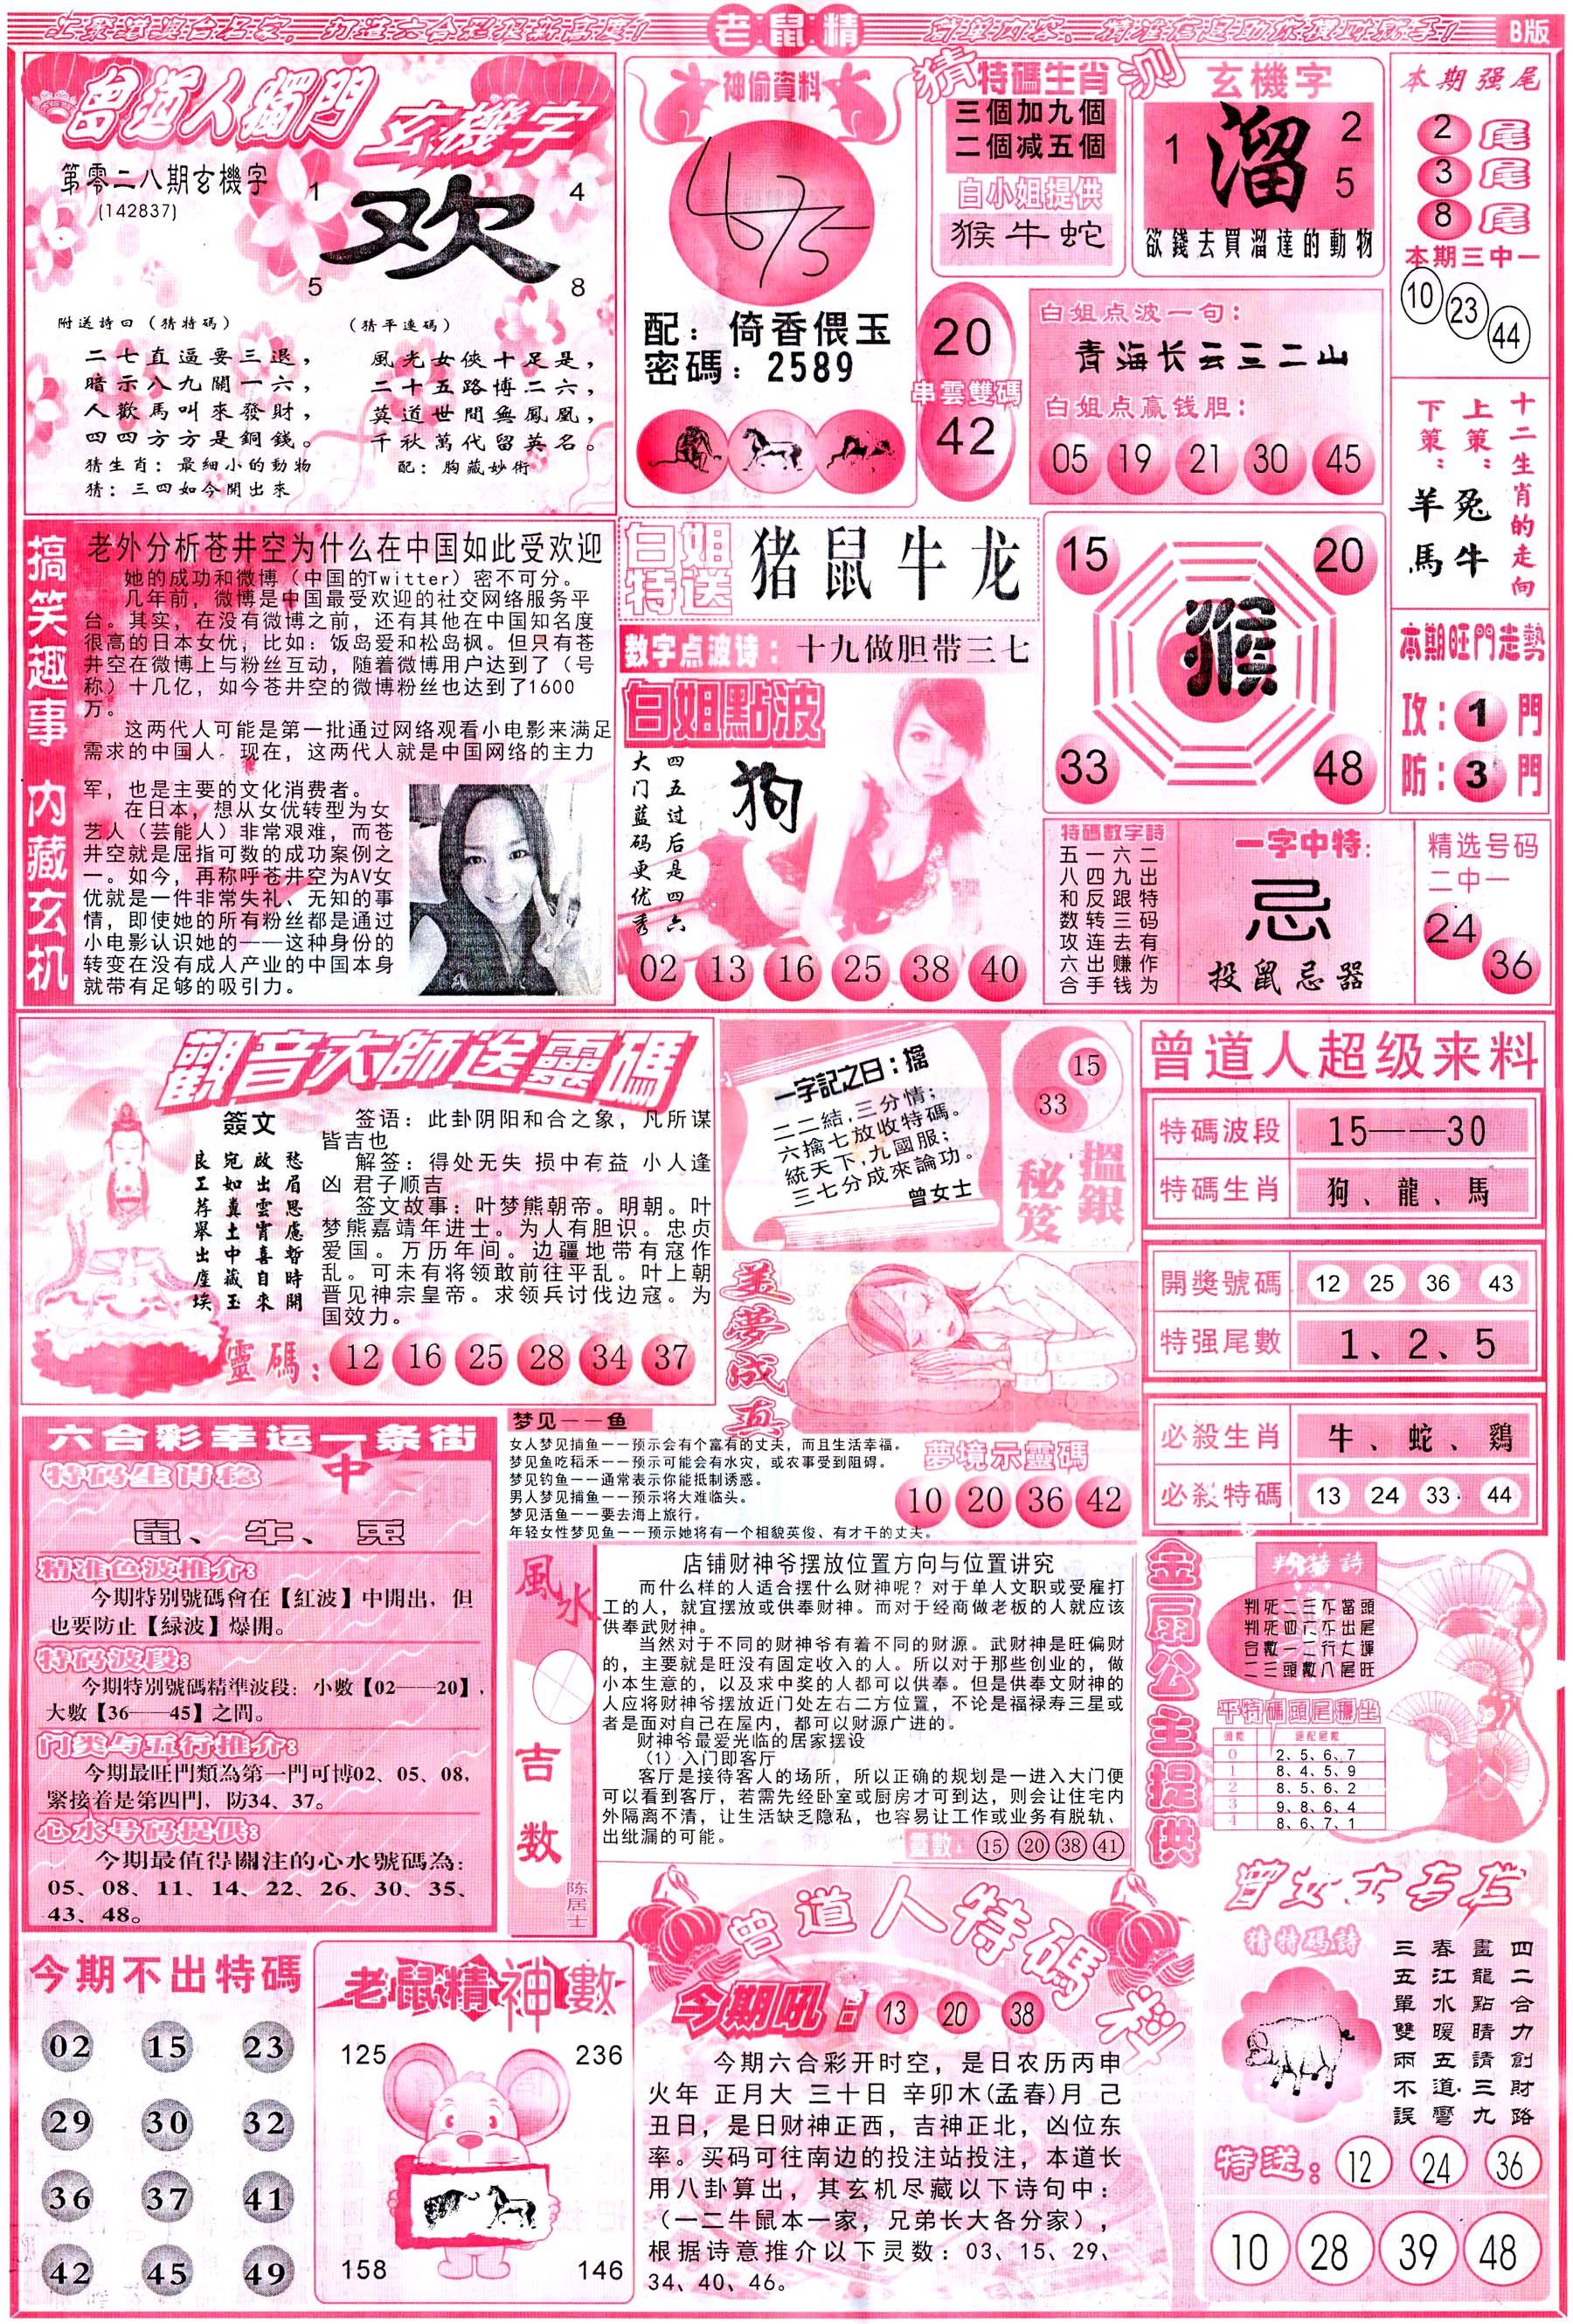 老鼠精
B版
曾道人獨門
玄機字
第零二八期玄機字
(142837)
1
4
欢
5
8
附送詩曰（猜特碼）
二七直逼要三退，
暗示八九關一六，
人歡馬叫來發財，
四四方方是銅錢。
猜生肖：最細小的動物
猜：三四如今開出來
（猜平連碼）
風光女俠十足是，
二十五路博二六，
莫道世間無鳳凰，
千秋萬代留英名。
配：胸藏妙術
神偷資料
配：倚香偎玉
密碼：2589
猜
特碼生肖
测
三個加九個
二個減五個
白小姐提供
猴牛蛇
玄機字
1
溜
2
5
欲錢去買溜達的動物
本期强尾
2尾
3尾
8尾
本期三中一
10
23
44
20
串雲雙碼
42
白姐点波一句：
青海长云三二山
白姐点赢钱胆：
05 19 21 30 45
十二生肖的走向
上策：兔牛
下策：羊馬
搞笑趣事 内藏玄机
老外分析苍井空为什么在中国如此受欢迎
她的成功和微博（中国的Twitter）密不可分。
几年前，微博是中国最受欢迎的社交网络服务平
台。其实，在没有微博之前，还有其他在中国知名度
很高的日本女优，比如：饭岛爱和松岛枫。但只有苍
井空在微博上与粉丝互动，随着微博用户达到了（号
称）十几亿，如今苍井空的微博粉丝也达到了1600
万。
这两代人可能是第一批通过网络观看小电影来满足
需求的中国人。现在，这两代人就是中国网络的主力
军，也是主要的文化消费者。
在日本，想从女优转型为女
艺人（芸能人）非常艰难，而苍
井空就是屈指可数的成功案例之
一。如今，再称呼苍井空为AV女
优就是一件非常失礼、无知的事
情，即使她的所有粉丝都是通过
小电影认识她的——这种身份的
转变在没有成人产业的中国本身
就带有足够的吸引力。
白姐特送
猪鼠牛龙
数字点波诗：十九做胆带三七
白姐點波
四五过后是四六
大门蓝码更优秀
狗
02 13 16 25 38 40
15
20
猴
33
48
本期旺門走勢
攻：1門
防：3門
特碼數字詩
二出特码有作为
六九跟三去赚钱
一四反转连出手
五八和数攻六合
一字中特：
忌
投鼠忌器
精选号码
二中一
24
36
觀音大師送靈碼
簽文
愁眉思慮暫時開
啟出雲霄喜自來
宛如糞土中藏玉
良工荐舉出塵埃
签语：此卦阴阳和合之象，凡所谋
皆吉也
解签：得处无失 损中有益 小人逢
凶 君子顺吉
签文故事：叶梦熊朝帝。明朝。叶
梦熊嘉靖年进士。为人有胆识。忠贞
爱国。万历年间。边疆地带有寇作
乱。可未有将领敢前往平乱。叶上朝
晋见神宗皇帝。求领兵讨伐边寇。为
国效力。
靈碼：12 16 25 28 34 37
一字記之曰：擒
二二結,三分情；
六擒七放收特碼。
統天下,九國服；
三七分成來論功。
曾女士
15
33
搵銀秘笈
曾道人超级来料
特碼波段 15——30
特碼生肖 狗、龍、馬
開獎號碼 12 25 36 43
特强尾數 1、2、5
必殺生肖 牛、蛇、鷄
必殺特碼 13 24 33 44
美夢成真
梦见——鱼
女人梦见捕鱼——预示会有个富有的丈夫，而且生活幸福。
梦见鱼吃稻禾——预示可能会有水灾，或农事受到阻碍。
梦见钓鱼——通常表示你能抵制诱惑。
男人梦见捕鱼——预示将大难临头。
梦见活鱼——要去海上旅行。
年轻女性梦见鱼——预示她将有一个相貌英俊、有才干的丈夫。
夢境示靈碼
10 20 36 42
六合彩幸运一条街
特码生肖稳中
鼠、牛、兎
精准色波推介：
今期特别號碼會在【紅波】中開出，但
也要防止【緑波】爆開。
特码波段：
今期特别號碼精準波段：小數【02——20】，
大數【36——45】之間。
门类与五行推介：
今期最旺門類為第一門可博02、05、08，
緊接着是第四門，防34、37。
心水号码提供：
今期最值得關注的心水號碼為：
05、08、11、14、22、26、30、35、
43、48。
風水
吉数
陈居士
店铺财神爷摆放位置方向与位置讲究
而什么样的人适合摆什么财神呢？对于单人文职或受雇打
工的人，就宜摆放或供奉财神。而对于经商做老板的人就应该
供奉武财神。
当然对于不同的财神爷有着不同的财源。武财神是旺偏财
的，主要就是旺没有固定收入的人。所以对于那些创业的，做
小本生意的，以及求中奖的人都可以供奉。但是供奉文财神的
人应将财神爷摆放近门处左右二方位置，不论是福禄寿三星或
者是面对自己在屋内，都可以财源广进的。
财神爷最爱光临的居家摆设
（1）入门即客厅
客厅是接待客人的场所，所以正确的规划是一进入大门便
可以看到客厅，若需先经卧室或厨房才可到达，则会让住宅内
外隔离不清，让生活缺乏隐私，也容易让工作或业务有脱轨、
出纰漏的可能。
靈數：15 20 38 41
金扇公主提供
判特詩
判死二三不當頭
判死四六不出尾
合數一二行大運
二三頭數八尾旺
平特碼頭尾穩坐
0 2、5、6、7
1 8、4、5、9
2 8、5、6、2
3 9、8、6、4
4 8、6、7、1
今期不出特碼
02 15 23
29 30 32
36 37 41
42 45 49
老鼠精神數
125
236
158
146
曾道人特碼料
今期吼
13 20 38
今期六合彩开时空，是日农历丙申
火年 正月大 三十日 辛卯木(孟春)月 己
丑日，是日财神正西，吉神正北，凶位东
率。买码可往南边的投注站投注，本道长
用八卦算出，其玄机尽藏以下诗句中：
（一二牛鼠本一家，兄弟长大各分家），
根据诗意推介以下灵数：03、15、29、
34、40、46。
曾女士专栏
猜特碼詩
四二合力創財路
畫龍點睛請三九
春江水暖五道彎
三五單雙兩不誤
特送：12 24 36
10 28 39 48